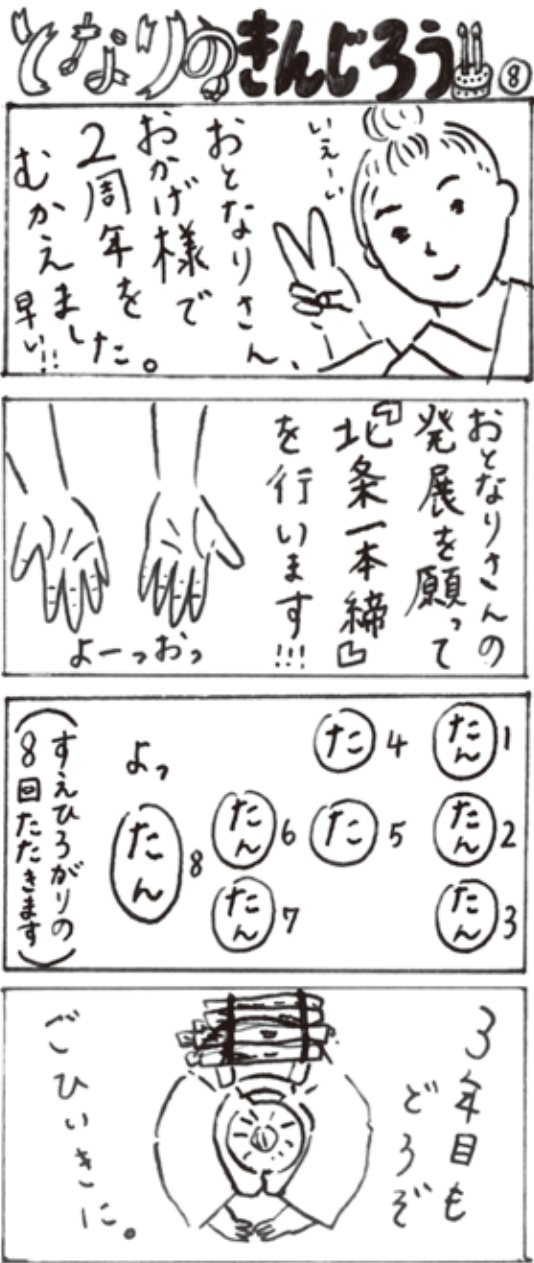 となりのきんじろう⑧
いえーい
おとなりさん、
おかげ様で
2周年を
むかえました。
早い!!
おとなりさんの
発展を願って
『北条一本締』
を行います!!!
よーっおっ
たん1
たん2
たん3
た4
た5
たん6
たん7
よっ
たん8
(すえひろがりの
8回たたきます)
3年目も
どうぞ
ごひいきに。